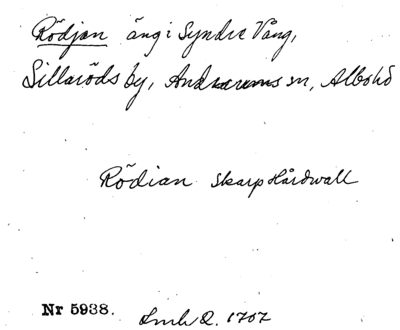 Rödjan äng i Syndre Vång,
Sillaröds by, Andrarums sn, Albo hd
Rödian Skarp Hårdwall
Nr 5938. LmhQ. 1707